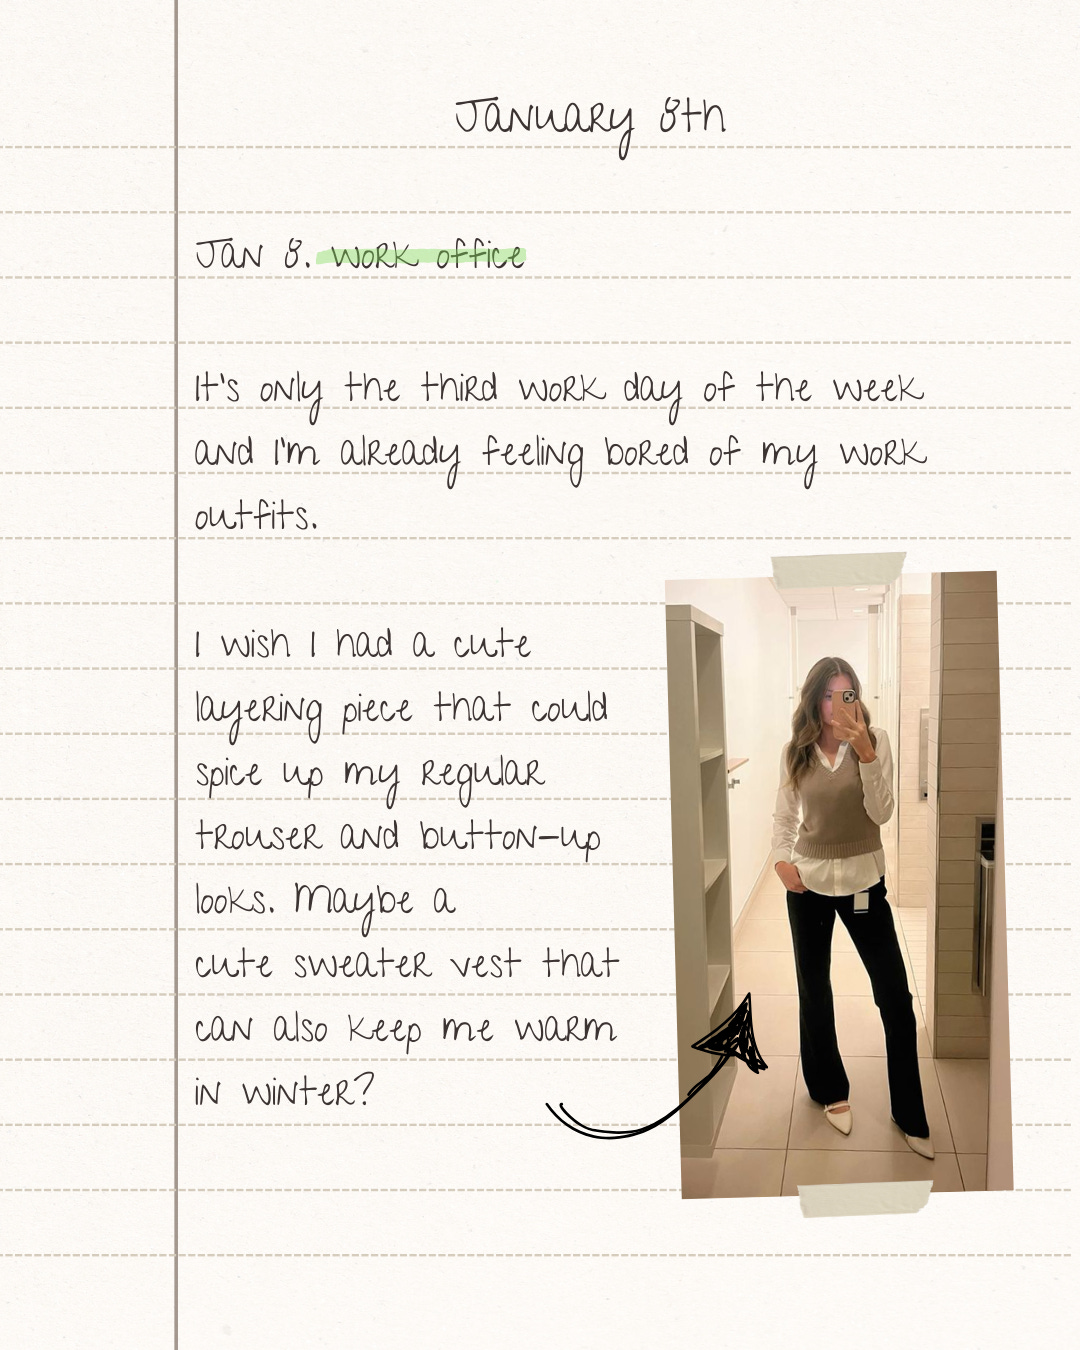 January 8th
Jan 8. work office
It's only the third work day of the week
and I'm already feeling bored of my work
outfits.
I wish I had a cute
layering piece that could
spice up my regular
trouser and button-up
looks. Maybe a
cute sweater vest that
can also keep me warm
in winter?